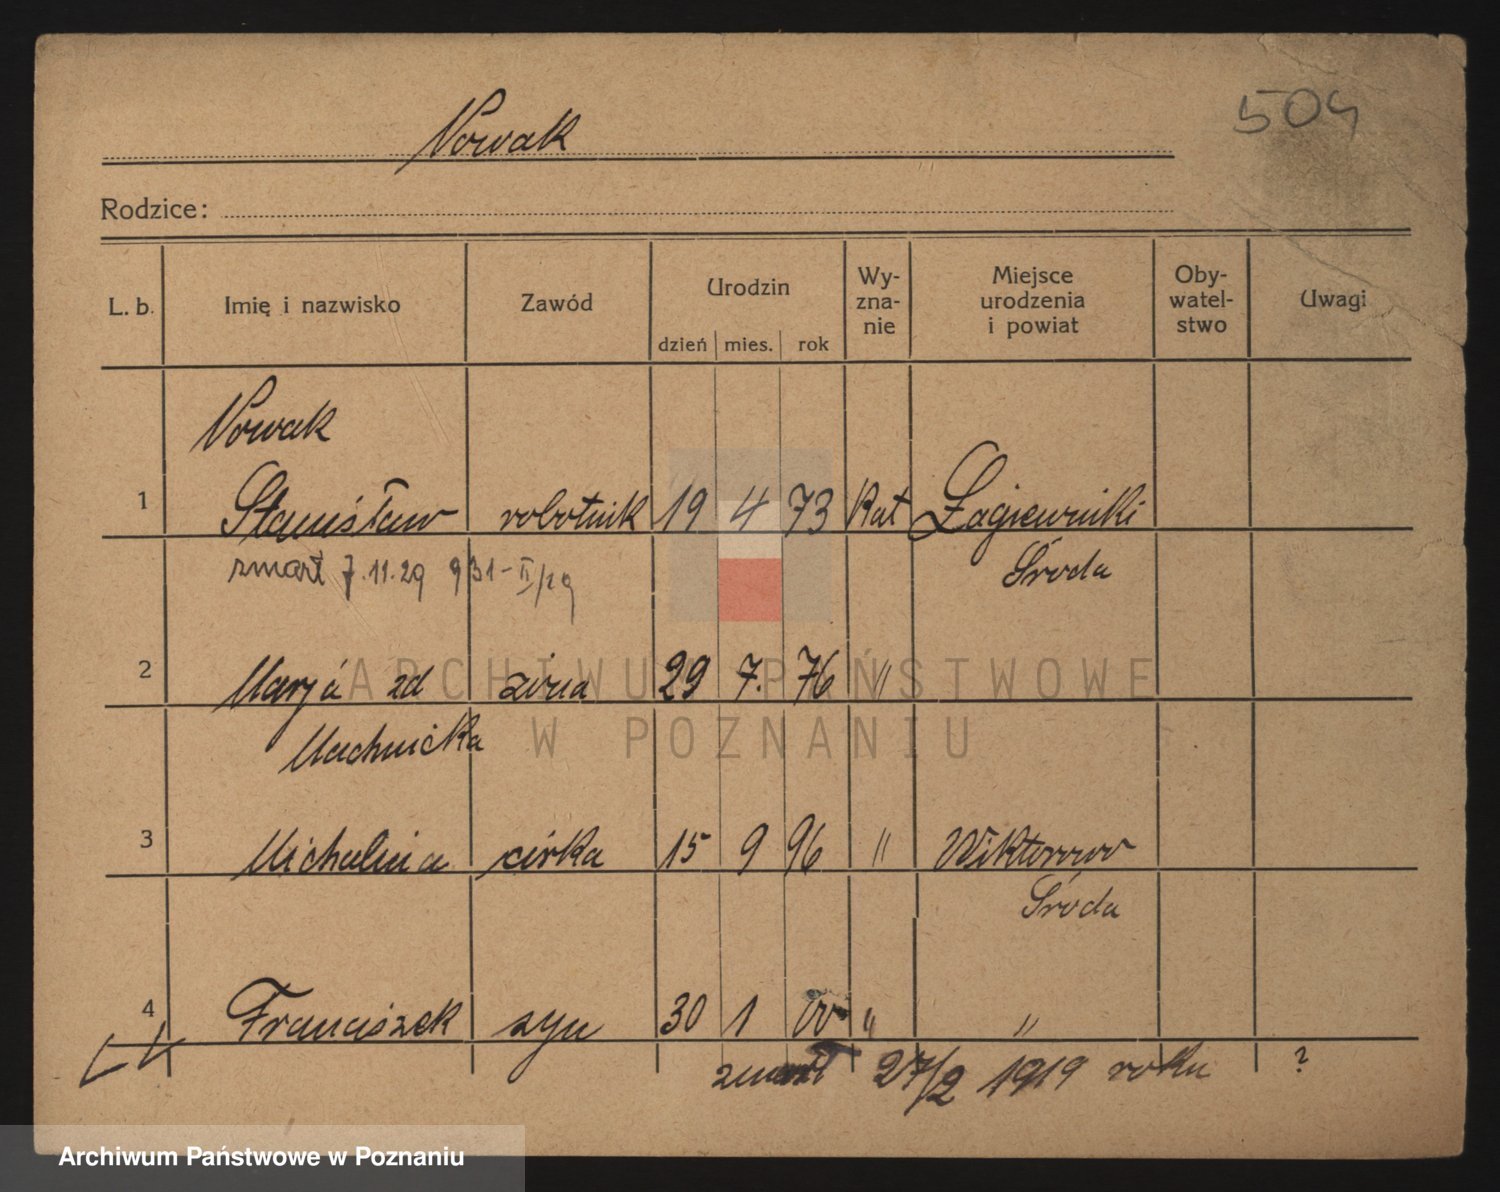 504
Nowak
Rodzice:
L. b. Imię i nazwisko Zawód Urodzin dzień mies. rok Wy-zna-nie Miejsce urodzenia i powiat Oby-watel-stwo Uwagi
Nowak
1 Stanisław robotnik 19 4 73 Kat Łagiewniki
zmarł 7.11.29 931-II/29 Środa
2 Marja zd żona 29 7. 76 "
Machnicka
3 Michalina córka 15 9 96 " Wiktorowo
Środa
4 Franciszek syn 30 1 00 " "
zmarł 27/2 1919 roku ?
ARCHIWUM PAŃSTWOWE
W POZNANIU
Archiwum Państwowe w Poznaniu